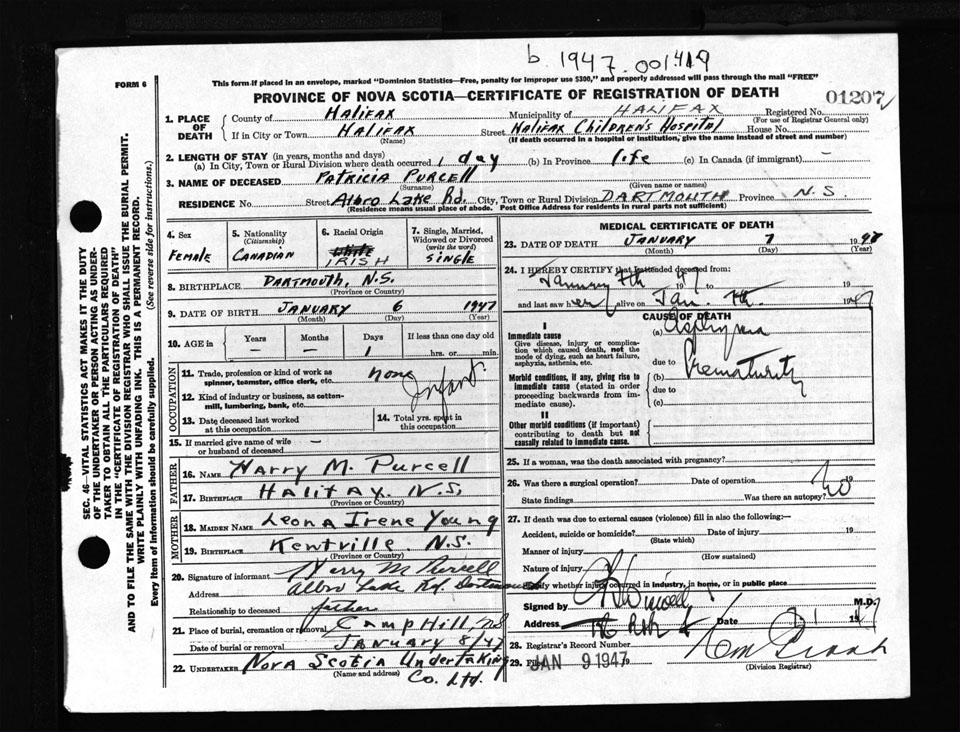 b. 1947. 001419
FORM 6
This form if placed in an envelope, marked "Dominion Statistics—Free, penalty for improper use $300," and properly addressed will pass through the mail "FREE"
PROVINCE OF NOVA SCOTIA—CERTIFICATE OF REGISTRATION OF DEATH
01207
1. PLACE OF DEATH
County of Halifax Municipality of HALIFAX Registered No.
(For use of Registrar General only)
If in City or Town Halifax Street Halifax Children's Hospital House No.
(Name) (If death occurred in a hospital or institution, give the name instead of street and number)
2. LENGTH OF STAY (in years, months and days)
(a) In City, Town or Rural Division where death occurred 1 day (b) In Province life (c) In Canada (if immigrant) —
3. NAME OF DECEASED Patricia Purcell
(Surname) (Given name or names)
RESIDENCE No. Street Albro Lake Rd. City, Town or Rural Division DARTMOUTH Province N.S
(Residence means usual place of abode. Post Office Address for residents in rural parts not sufficient)
4. Sex
Female
5. Nationality
(Citizenship)
Canadian
6. Racial Origin
White
IRISH
7. Single, Married, Widowed or Divorced
(write the word)
Single
8. BIRTHPLACE Dartmouth, N.S.
(Province or Country)
9. DATE OF BIRTH January 6 1947
(Month) (Day)
10. AGE in Years Months Days If less than one day old
— — 1 hrs. or min.
OCCUPATION
11. Trade, profession or kind of work as spinner, teamster, office clerk, etc. none
Infant.
12. Kind of industry or business, as cotton-mill, lumbering, bank, etc.
13. Date deceased last worked at this occupation
14. Total yrs. spent in this occupation
15. If married give name of wife or husband of deceased —
FATHER
16. NAME Harry M. Purcell
17. BIRTHPLACE Halifax. N.S.
(Province or Country)
MOTHER
18. MAIDEN NAME Leona Irene Young
19. BIRTHPLACE Kentville. N.S.
(Province or Country)
20. Signature of informant Harry M Purcell
Address Albro Lake Rd. Dartmouth
Relationship to deceased father
21. Place of burial, cremation or removal Camp Hill, N.S
Date of burial or removal January 8/47
22. UNDERTAKER Nova Scotia Undertaking
(Name and address) Co. Ltd.
MEDICAL CERTIFICATE OF DEATH
23. DATE OF DEATH January 7 1947
(Month) (Day)
24. I HEREBY CERTIFY that I attended deceased from:
January 7th 1947 19
and last saw her alive on Jan. 7th. 1947
CAUSE OF DEATH
I
Immediate cause
Give disease, injury or complication which caused death, not the mode of dying, such as heart failure, asphyxia, asthenia, etc.
(a) Asphyxia
due to
Morbid conditions, if any, giving rise to immediate cause (stated in order proceeding backwards from immediate cause).
(b) Prematurity
due to
(c)
II
Other morbid conditions (if important) contributing to death but not causally related to immediate cause.
25. If a woman, was the death associated with pregnancy?
26. Was there a surgical operation? Date of operation 19
State findings Was there an autopsy? No
27. If death was due to external causes (violence) fill in also the following:—
Accident, suicide or homicide? Date of injury 19
(State which)
Manner of injury
(How sustained)
Nature of injury
Specify whether injury occurred in industry, in home, or in public place
Signed by M.D.
Address Date
28. Registrar's Record Number
29. Filed JAN 9 1947
(Division Registrar)
SEC. 46—VITAL STATISTICS ACT MAKES IT THE DUTY
OF THE UNDERTAKER OR PERSON ACTING AS UNDER-
TAKER TO OBTAIN ALL THE PARTICULARS REQUIRED
IN THE "CERTIFICATE OF REGISTRATION OF DEATH"
AND TO FILE THE SAME WITH THE DIVISION REGISTRAR WHO SHALL ISSUE THE BURIAL PERMIT.
WRITE PLAINLY WITH UNFADING INK. THIS IS A PERMANENT RECORD.
Every item of information should be carefully supplied. (See reverse side for instructions.)